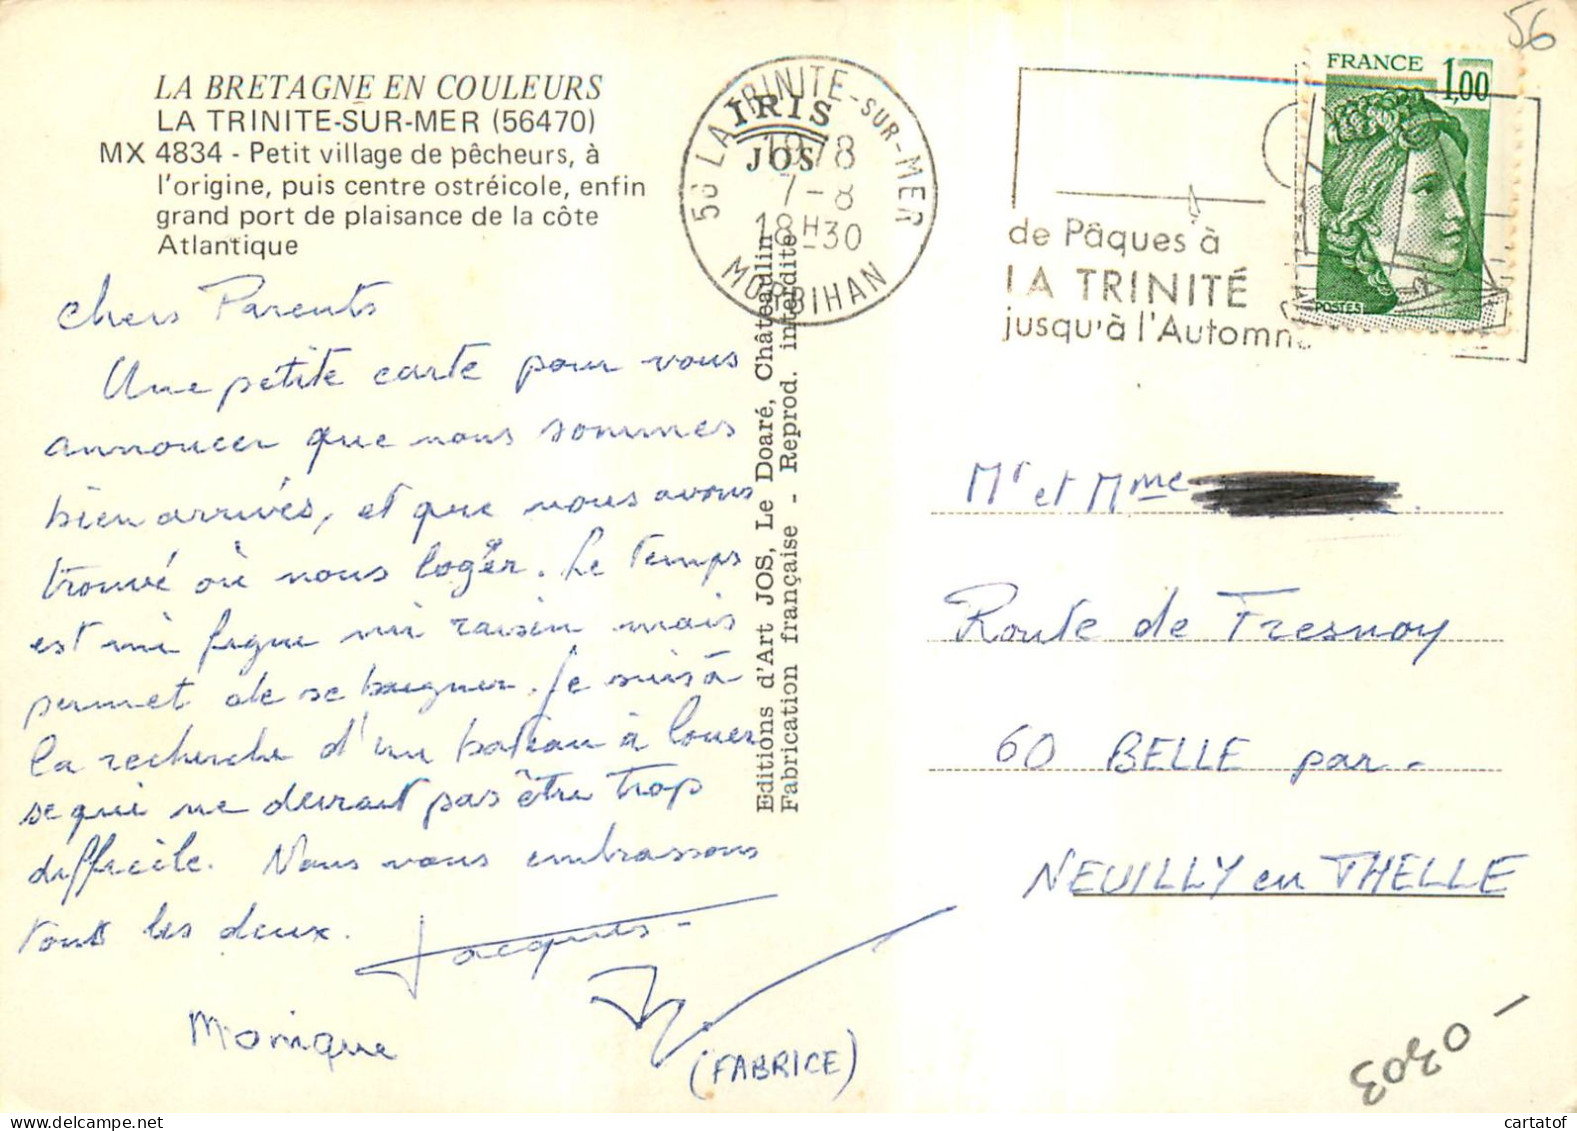 56
LA BRETAGNE EN COULEURS
LA TRINITE-SUR-MER (56470)
MX 4834 - Petit village de pêcheurs, à
l'origine, puis centre ostréicole, enfin
grand port de plaisance de la côte
Atlantique
IRIS
JOS
56 LA TRINITE-SUR-MER
1978
7-8
18H30
MORBIHAN
de Pâques à
LA TRINITÉ
jusqu'à l'Automne
FRANCE 1,00
POSTES
Editions d'Art JOS, Le Doaré, Châteaulin
Fabrication française - Reprod. interdite
Chers Parents
Une petite carte pour vous
annoncer que nous sommes
bien arrivés, et que nous avons
trouvé où nous loger. Le temps
est mi figue mi raisin mais
permet de se baigner. Je suis à
la recherche d'un bateau à louer
se qui ne devrait pas être trop
difficile. Nous vous embrassons
tous les deux.
Jacques
Monique
(FABRICE)
Mr et Mme
Route de Fresnoy
60 BELLE par
NEUILLY en THELLE
cartatof